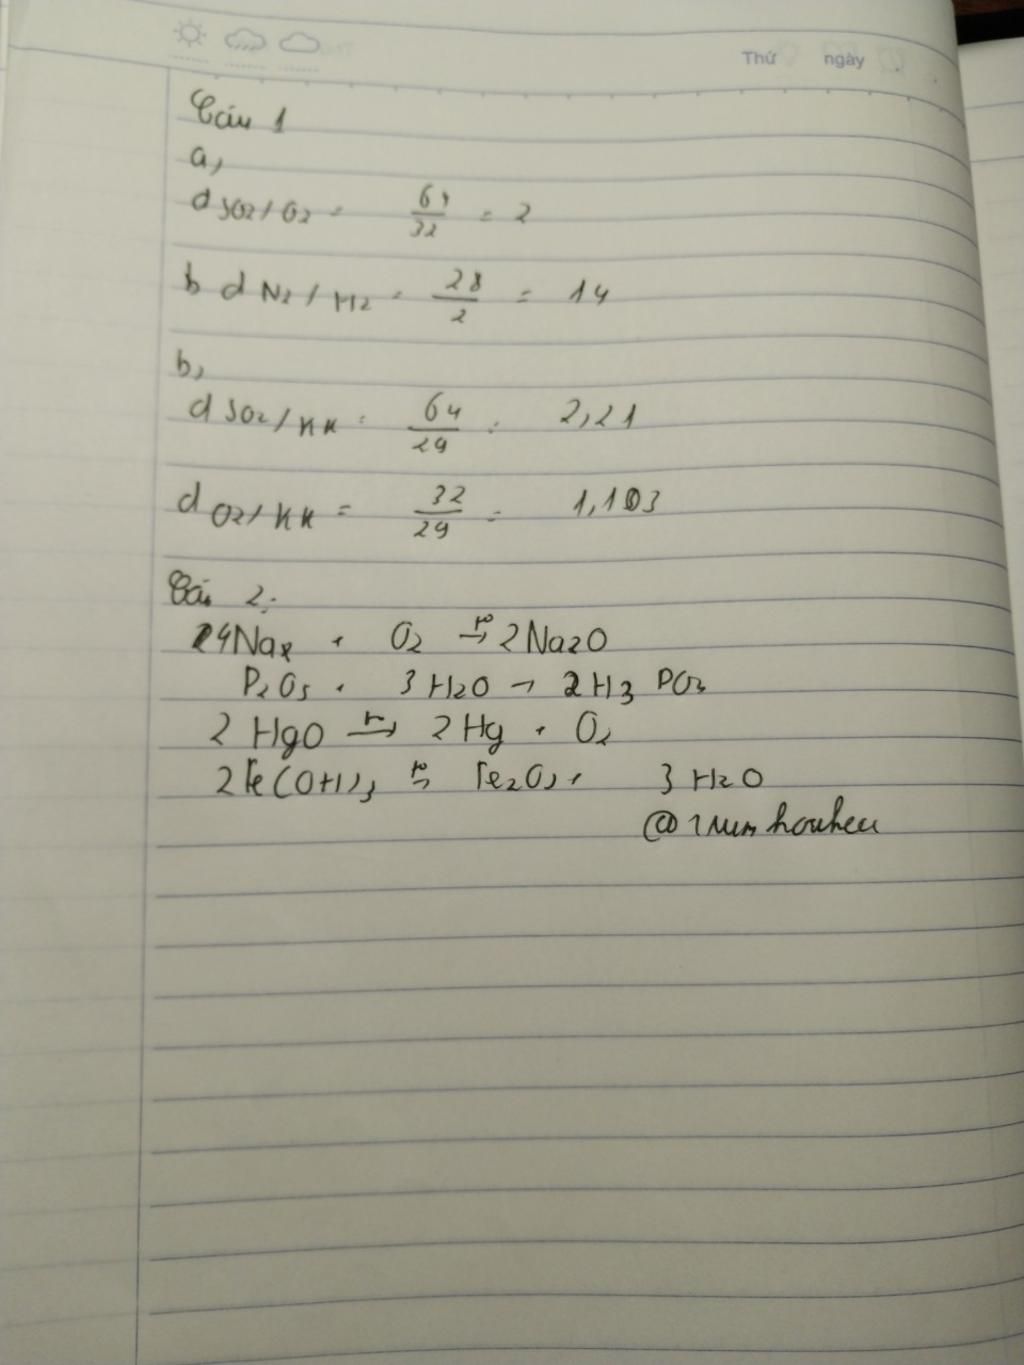 Thứ ngày
Câu 1
a,
d SO2/O2 = 64/32 = 2
b d N2/H2 = 28/2 = 14
b,
d SO2/KK = 64/29 = 2,21
d O2/KK = 32/29 = 1,103
Câu 2:
4Na + O2 → 2Na2O
P2O5 + 3H2O → 2H3 PO3
2 HgO → 2Hg + O2
2Fe(OH)3 → Fe2O3 + 3 H2O